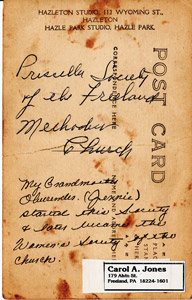 HAZLETON STUDIO, 111 WYOMING ST.,
HAZLETON
HAZLE PARK STUDIO, HAZLE PARK.
POST CARD
CORRESPONDENCE HERE
Priscilla Society
of the Freeland
Methodist
Church
My Grandmoth
(Jennie)
started this Society
& later became the
Women's Society in the
Church.
Carol A. Jones
179 Alvin St.
Freeland, PA 18224-1601